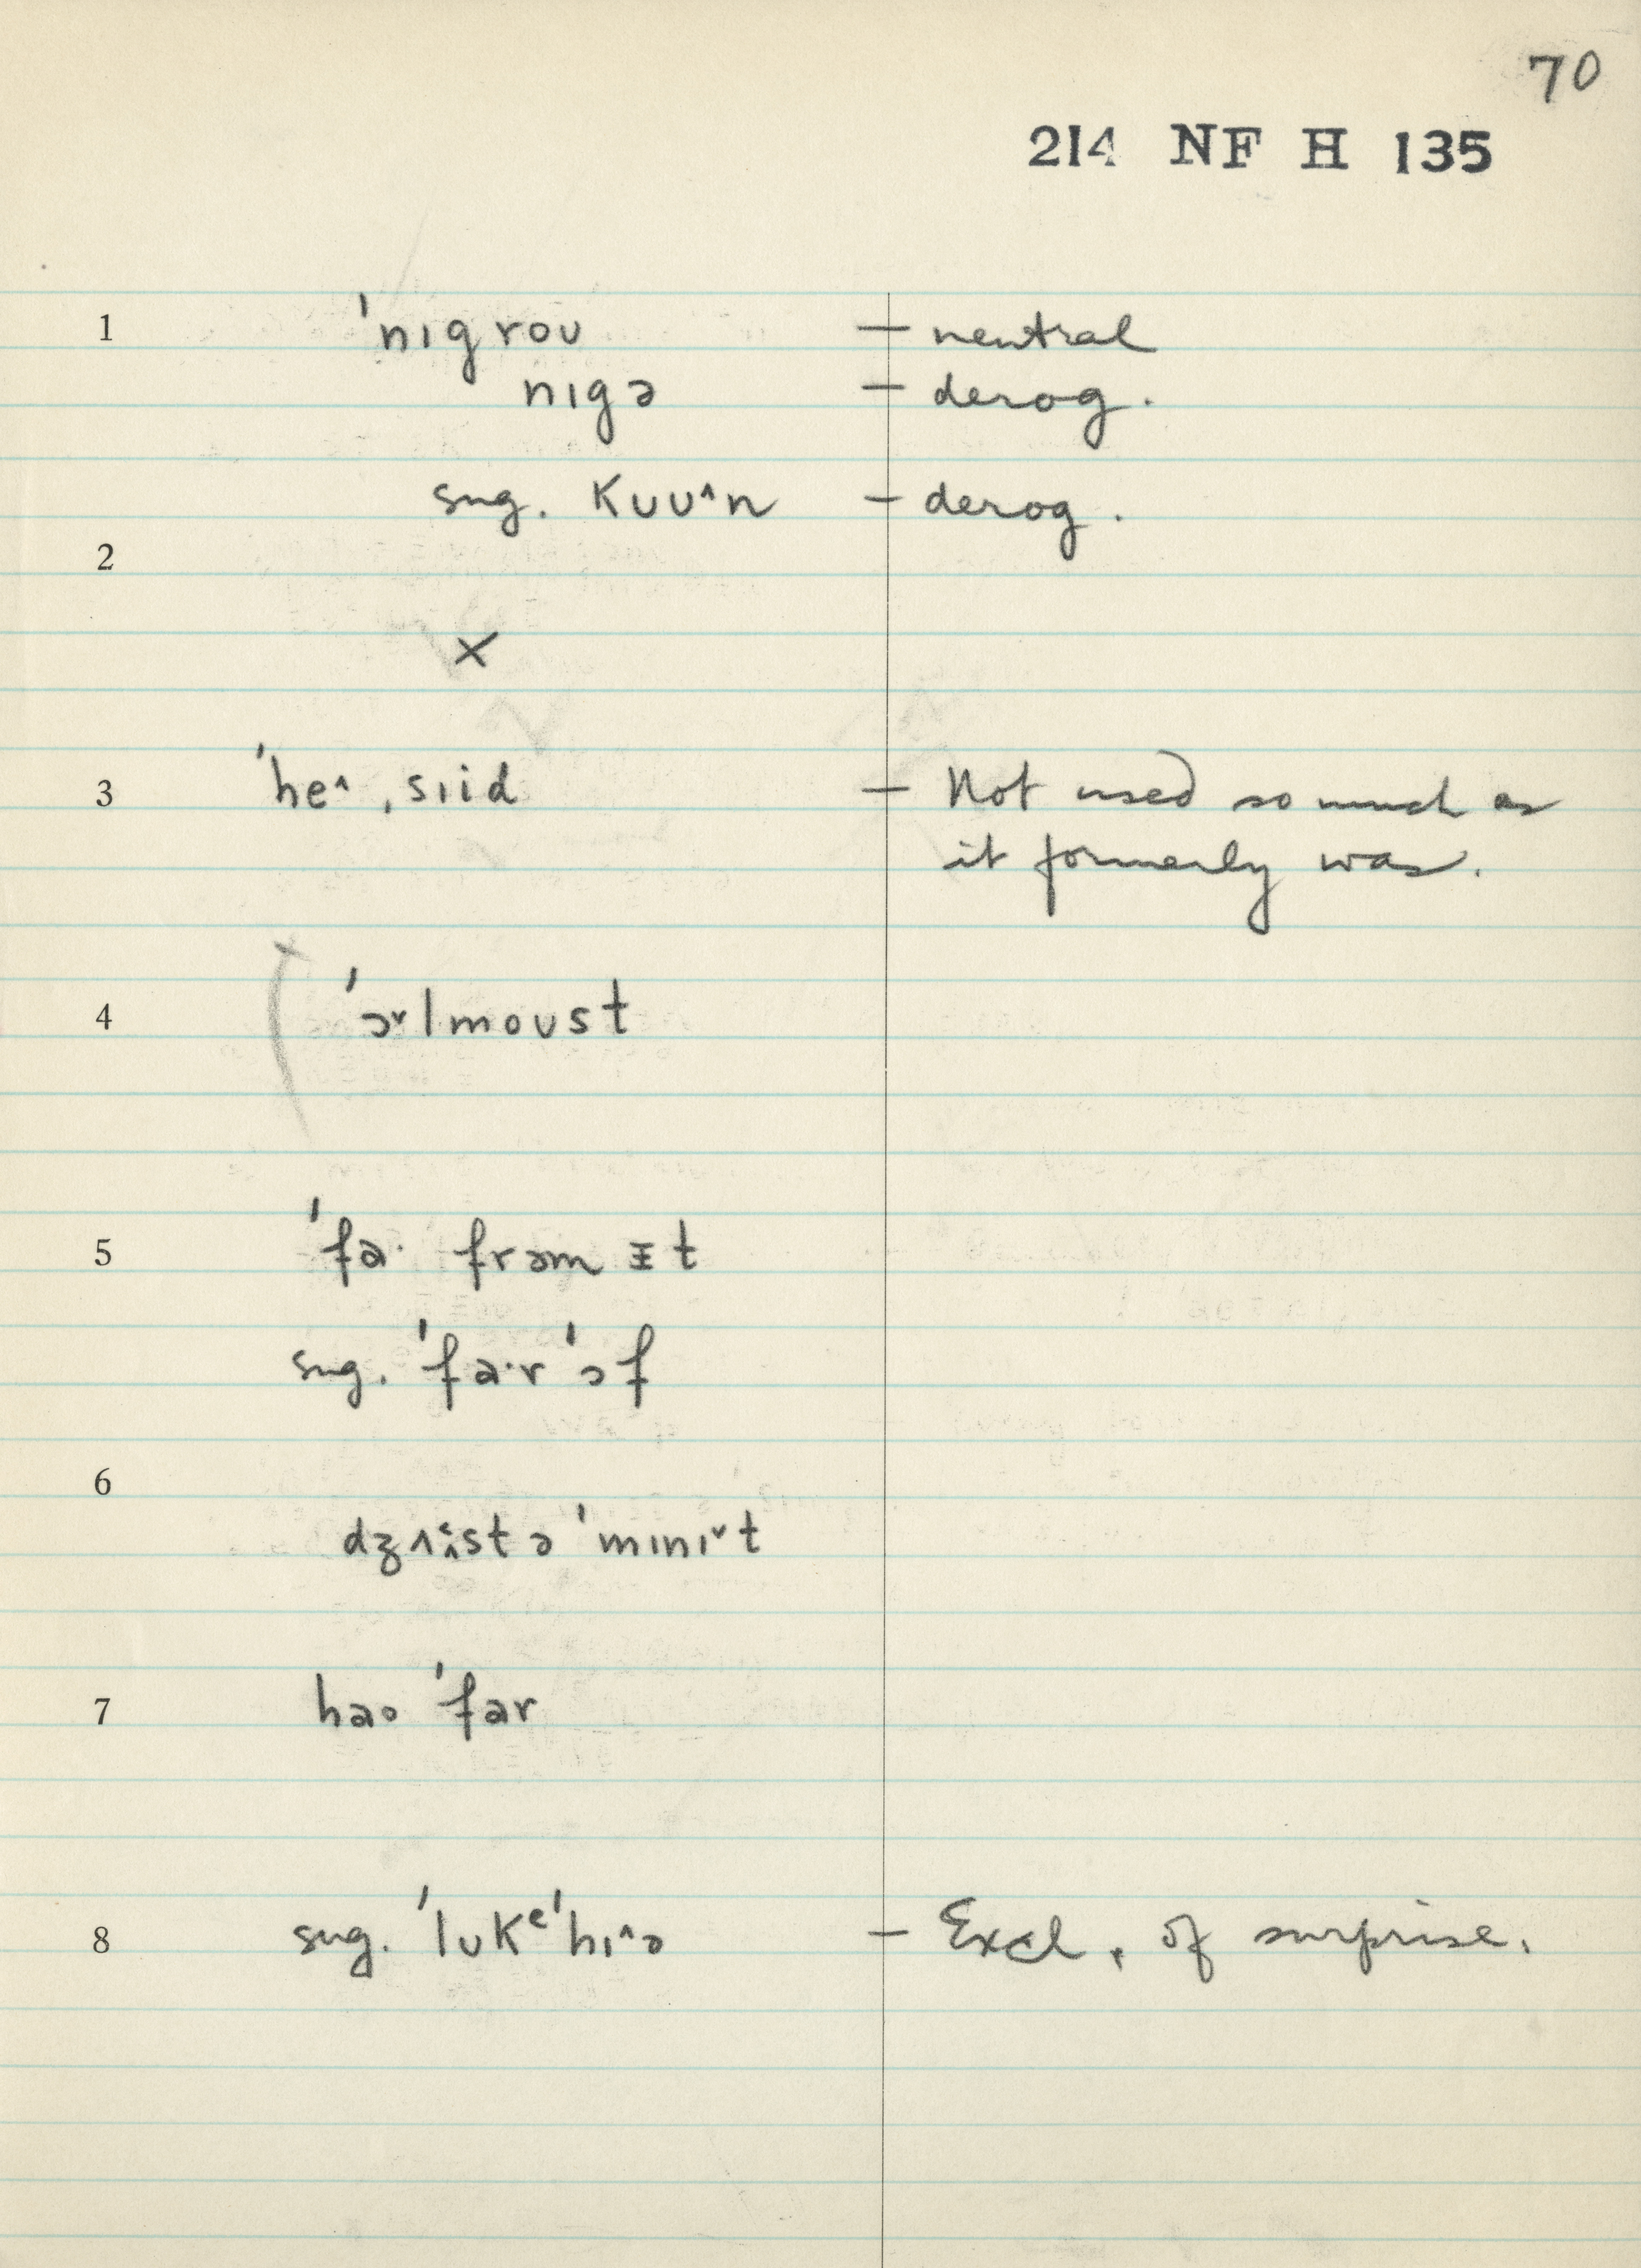 70
214 NF H 135
1 ˈnɪgroʊ — neutral
nɪgə — derog.
sug. kuu^n — derog.
2
×
3 ˈhe^ ˌsɪid — Not used so much as
it formerly was.
4 ˈɔ˅lmoʊst
5 ˈfa· frəm ᵻt
sug. ˈfa·r ˈɔf
6
ə ˈmɪnɪ˅t
7 hao ˈfar
8 sug. ˈlʊkᵉˈhɪ^ə — Excl. of surprise.